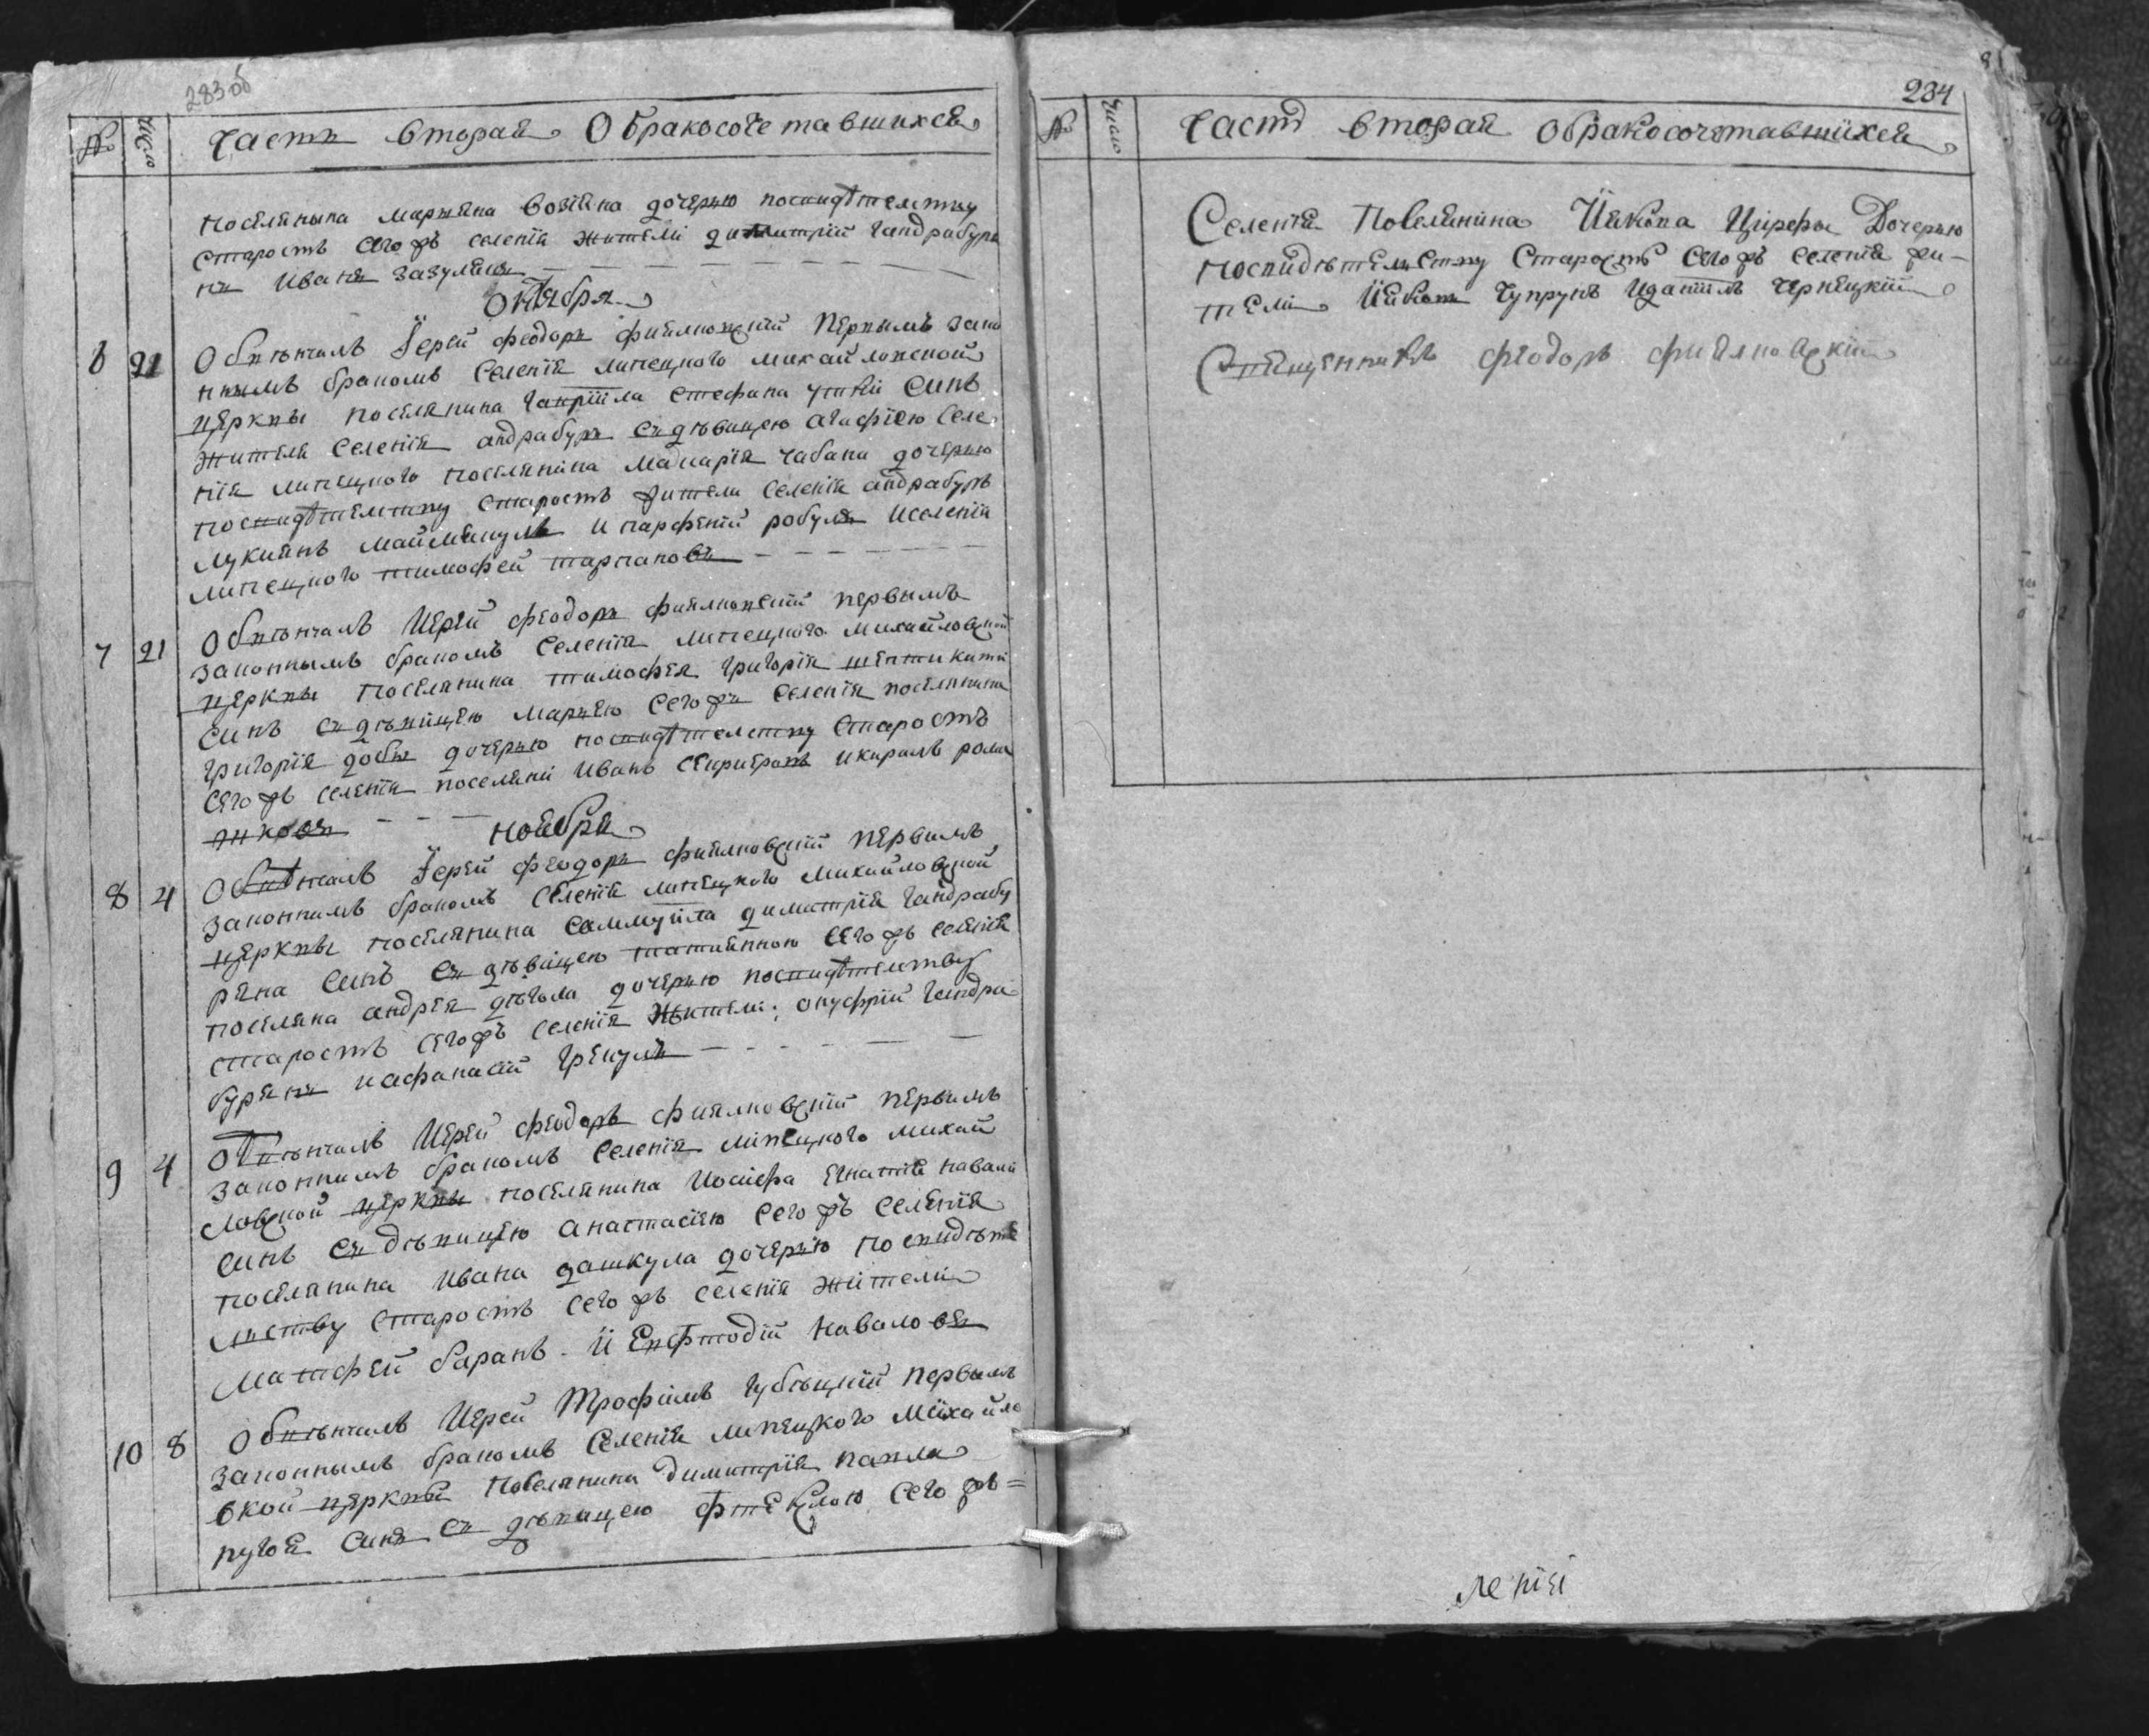 283об
№ Число Часть вторая О бракосочетавшихся
поселянына маркяна возіяна дочерью посвидѣтелству
старостъ сегожъ селенія жители димитрій гандрабура
нъ Иванъ зазулянъ
октября
6 21 Обвѣнчалъ Іерей феодоръ фиялковскій первымъ зако
ннымъ бракомъ Селенія липецкого михайловской
церквы поселянина гавріила стефана синъ
жителя Селенія андрабуръ съ дѣвицею агафіею Селе
нія липецкого поселянина макарія чабана дочерью
посвидѣтелству старостъ жители Селенія андрабуръ
лукіянъ маймѣскулъ и парфеній робуля иселенія
липецкого тимофей тарпановъ
7 21 Обвѣнчалъ Иерей феодоръ фиялковскій первымъ
законнымъ бракомъ Селенія липецкого михайловской
церквы поселянина тимофея григорія
синъ съ дѣвицею маріею Сегожъ Селенія поселянина
григорія добы дочерью посвидѣтелству старостъ
Сегожъ селенія поселяні Иванъ и рома
ноября
8 4 Обвѣнчалъ Іерей феодоръ фиялковскій первымъ
законнимъ бракомъ Селенія липецкого михайловской
церквы поселянина Саммуила димитрія гандрабу
ряна Синъ съ дѣвицею татиянною Сегожъ селенія
поселяна андрея дѣгола дочерью посвидѣтелству
старостъ сегожъ селенія жители: онуфрій гандра
бурянъ иафанасій грекулъ
9 4 Обвѣнчалъ Иерей феодоръ фиялковскій первимъ
законнимъ бракомъ Селенія липецкого михай
ловской церквы поселянина Иосифа Игнатія навали
синъ съ дѣвицею анастасіею Сегожъ Селенія
поселянина Ивана дашкула дочерью по свидѣте
лству старостъ сегожъ селенія жителі
Матфей баранъ и Евфтодій наваловъ
10 8 Обвѣнчалъ Иерей Трофимъ губѣцкій первымъ
законнымъ бракомъ Селенія липецкого Міхайло
вской церквы Поселянина Димитрія павла
ругоя синъ съ дѣвицею фтеклою Сегожъ=
234
№ Число Часть вторая Обракосочетавшихся
Селенія Поселянина Іякова Цирефы Дочерью
посвидѣтелству Старостъ Сегожъ Селенія жи-
телі Іяковъ Чупрунъ Игнатій Чернецкій
Священникъ феодоръ фиялковскій
ленія